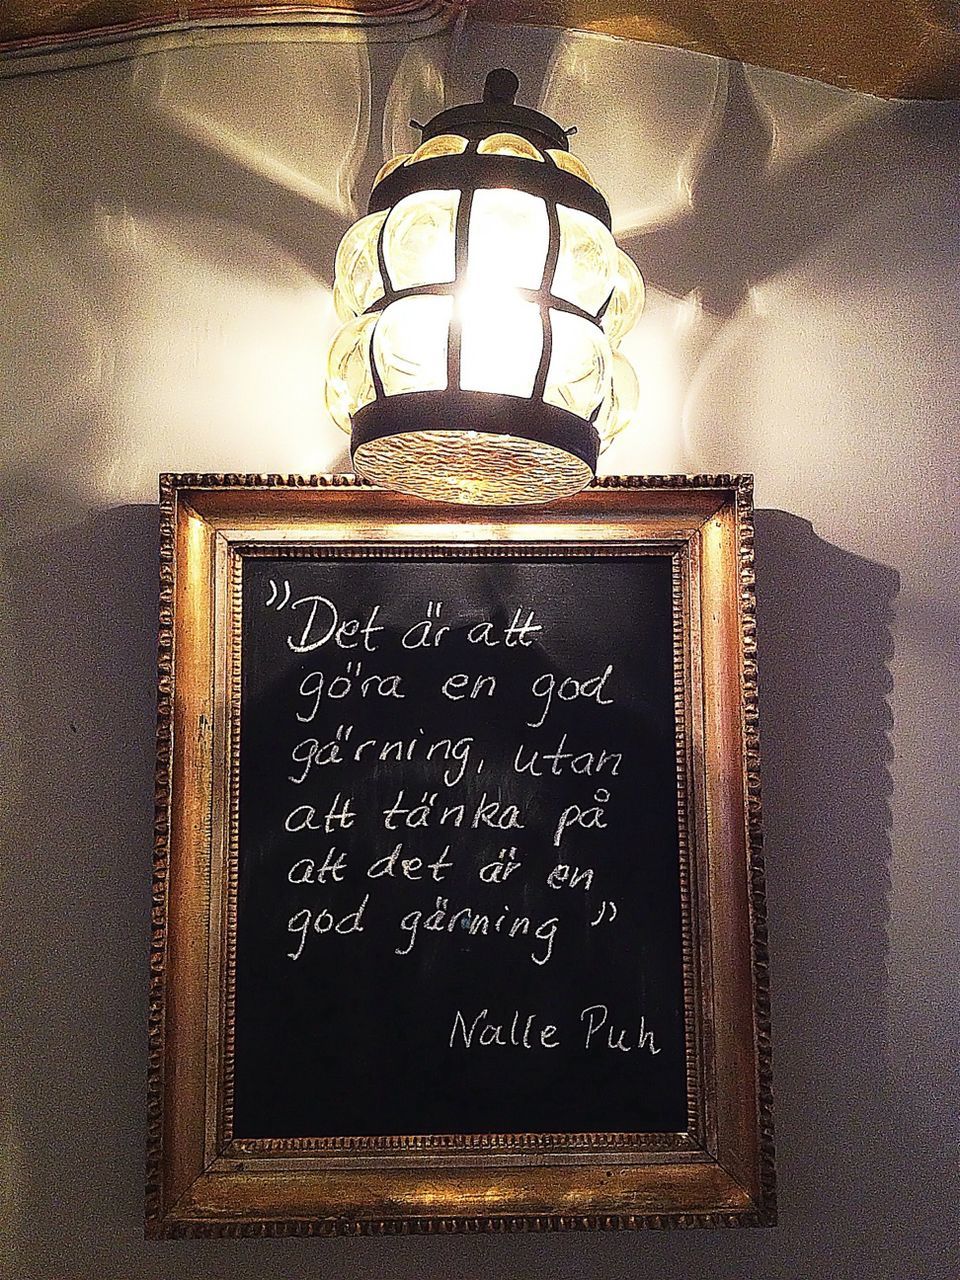 ”Det är att
göra en god
gärning, utan
att tänka på
att det är en
god gärning”
Nalle Puh